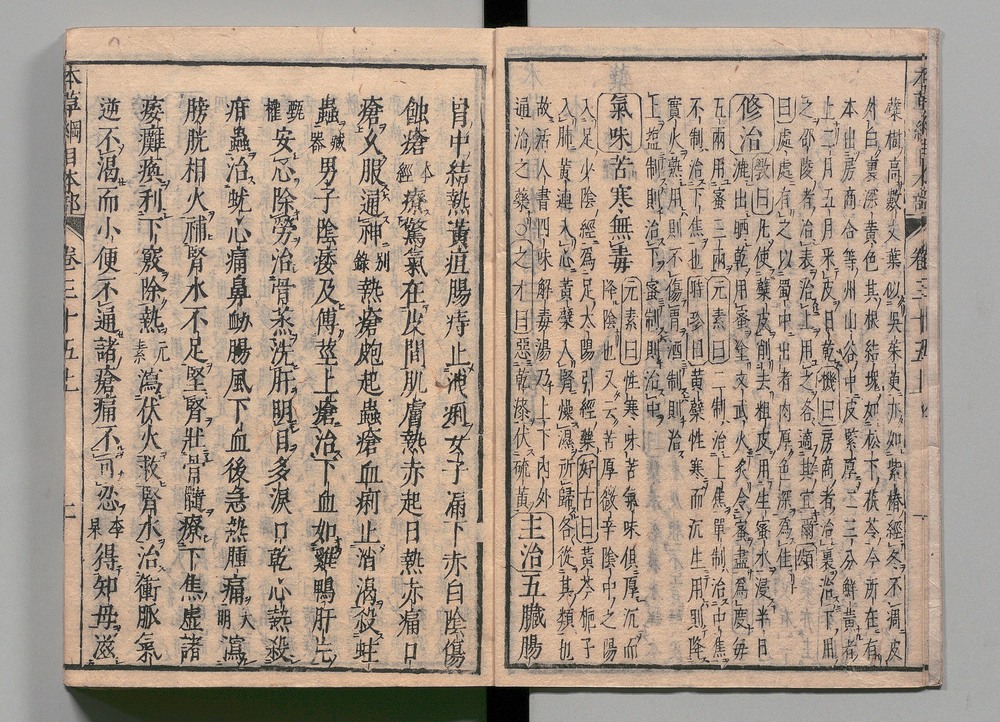 蘗樹高數丈葉似吳茱萸亦如紫椿經冬不凋皮
外白裏深黃色其根結塊如松下茯苓今所在有
本出房商合等州山谷中皮緊厚二三分鮮黃者
上二月五月采皮日乾機曰房商者治裏治下用
之邵陵者治表治上用之各適其宜爾頌
曰處處有之以蜀中出者肉厚色深為佳
修治 斆曰凡使蘗皮削去粗皮用生蜜水浸半日
漉出晒乾用蜜塗文武火炙令蜜盡為度每
五兩用蜜三兩元素曰二制治上焦單制治中焦
不制治下焦也時珍曰黃蘗性寒而沉生用則降
實火熱用則不傷胃酒制則治
上塩制則治下蜜制則治中
氣味苦寒無毒 元素曰性寒味苦氣味俱厚沉而
降陰也又云苦厚微辛陰中之陽
入足少陰經為足太陽引經藥好古曰黃芩梔子
入肺黃連入心黃蘗入腎燥濕所歸各從其類也
故活人書四味解毒湯乃上下內外
通治之藥之才曰惡乾漆伏硫黃
主治五臟腸
胃中結熱黃疸腸痔止洩痢女子漏下赤白陰傷
蝕瘡本經療驚氣在皮間肌膚熱赤起目熱赤痛口
瘡久服通神別錄熱瘡皰起蟲瘡血痢止消渴殺蛀
蟲藏器男子陰痿及傅莖上瘡治下血如雞鴨肝片
甄權安心除勞治骨蒸洗肝明目多淚口乾心熱殺
疳蟲治蚘心痛鼻衄腸風下血後急熱腫痛大明瀉
膀胱相火補腎水不足堅腎壯骨髓療下焦虛諸
痿癱瘓利下竅除熱元素瀉伏火救腎水治衝脈氣
逆不渴而小便不通諸瘡痛不可忍李杲得知母滋
本草綱目木部 卷三十五上